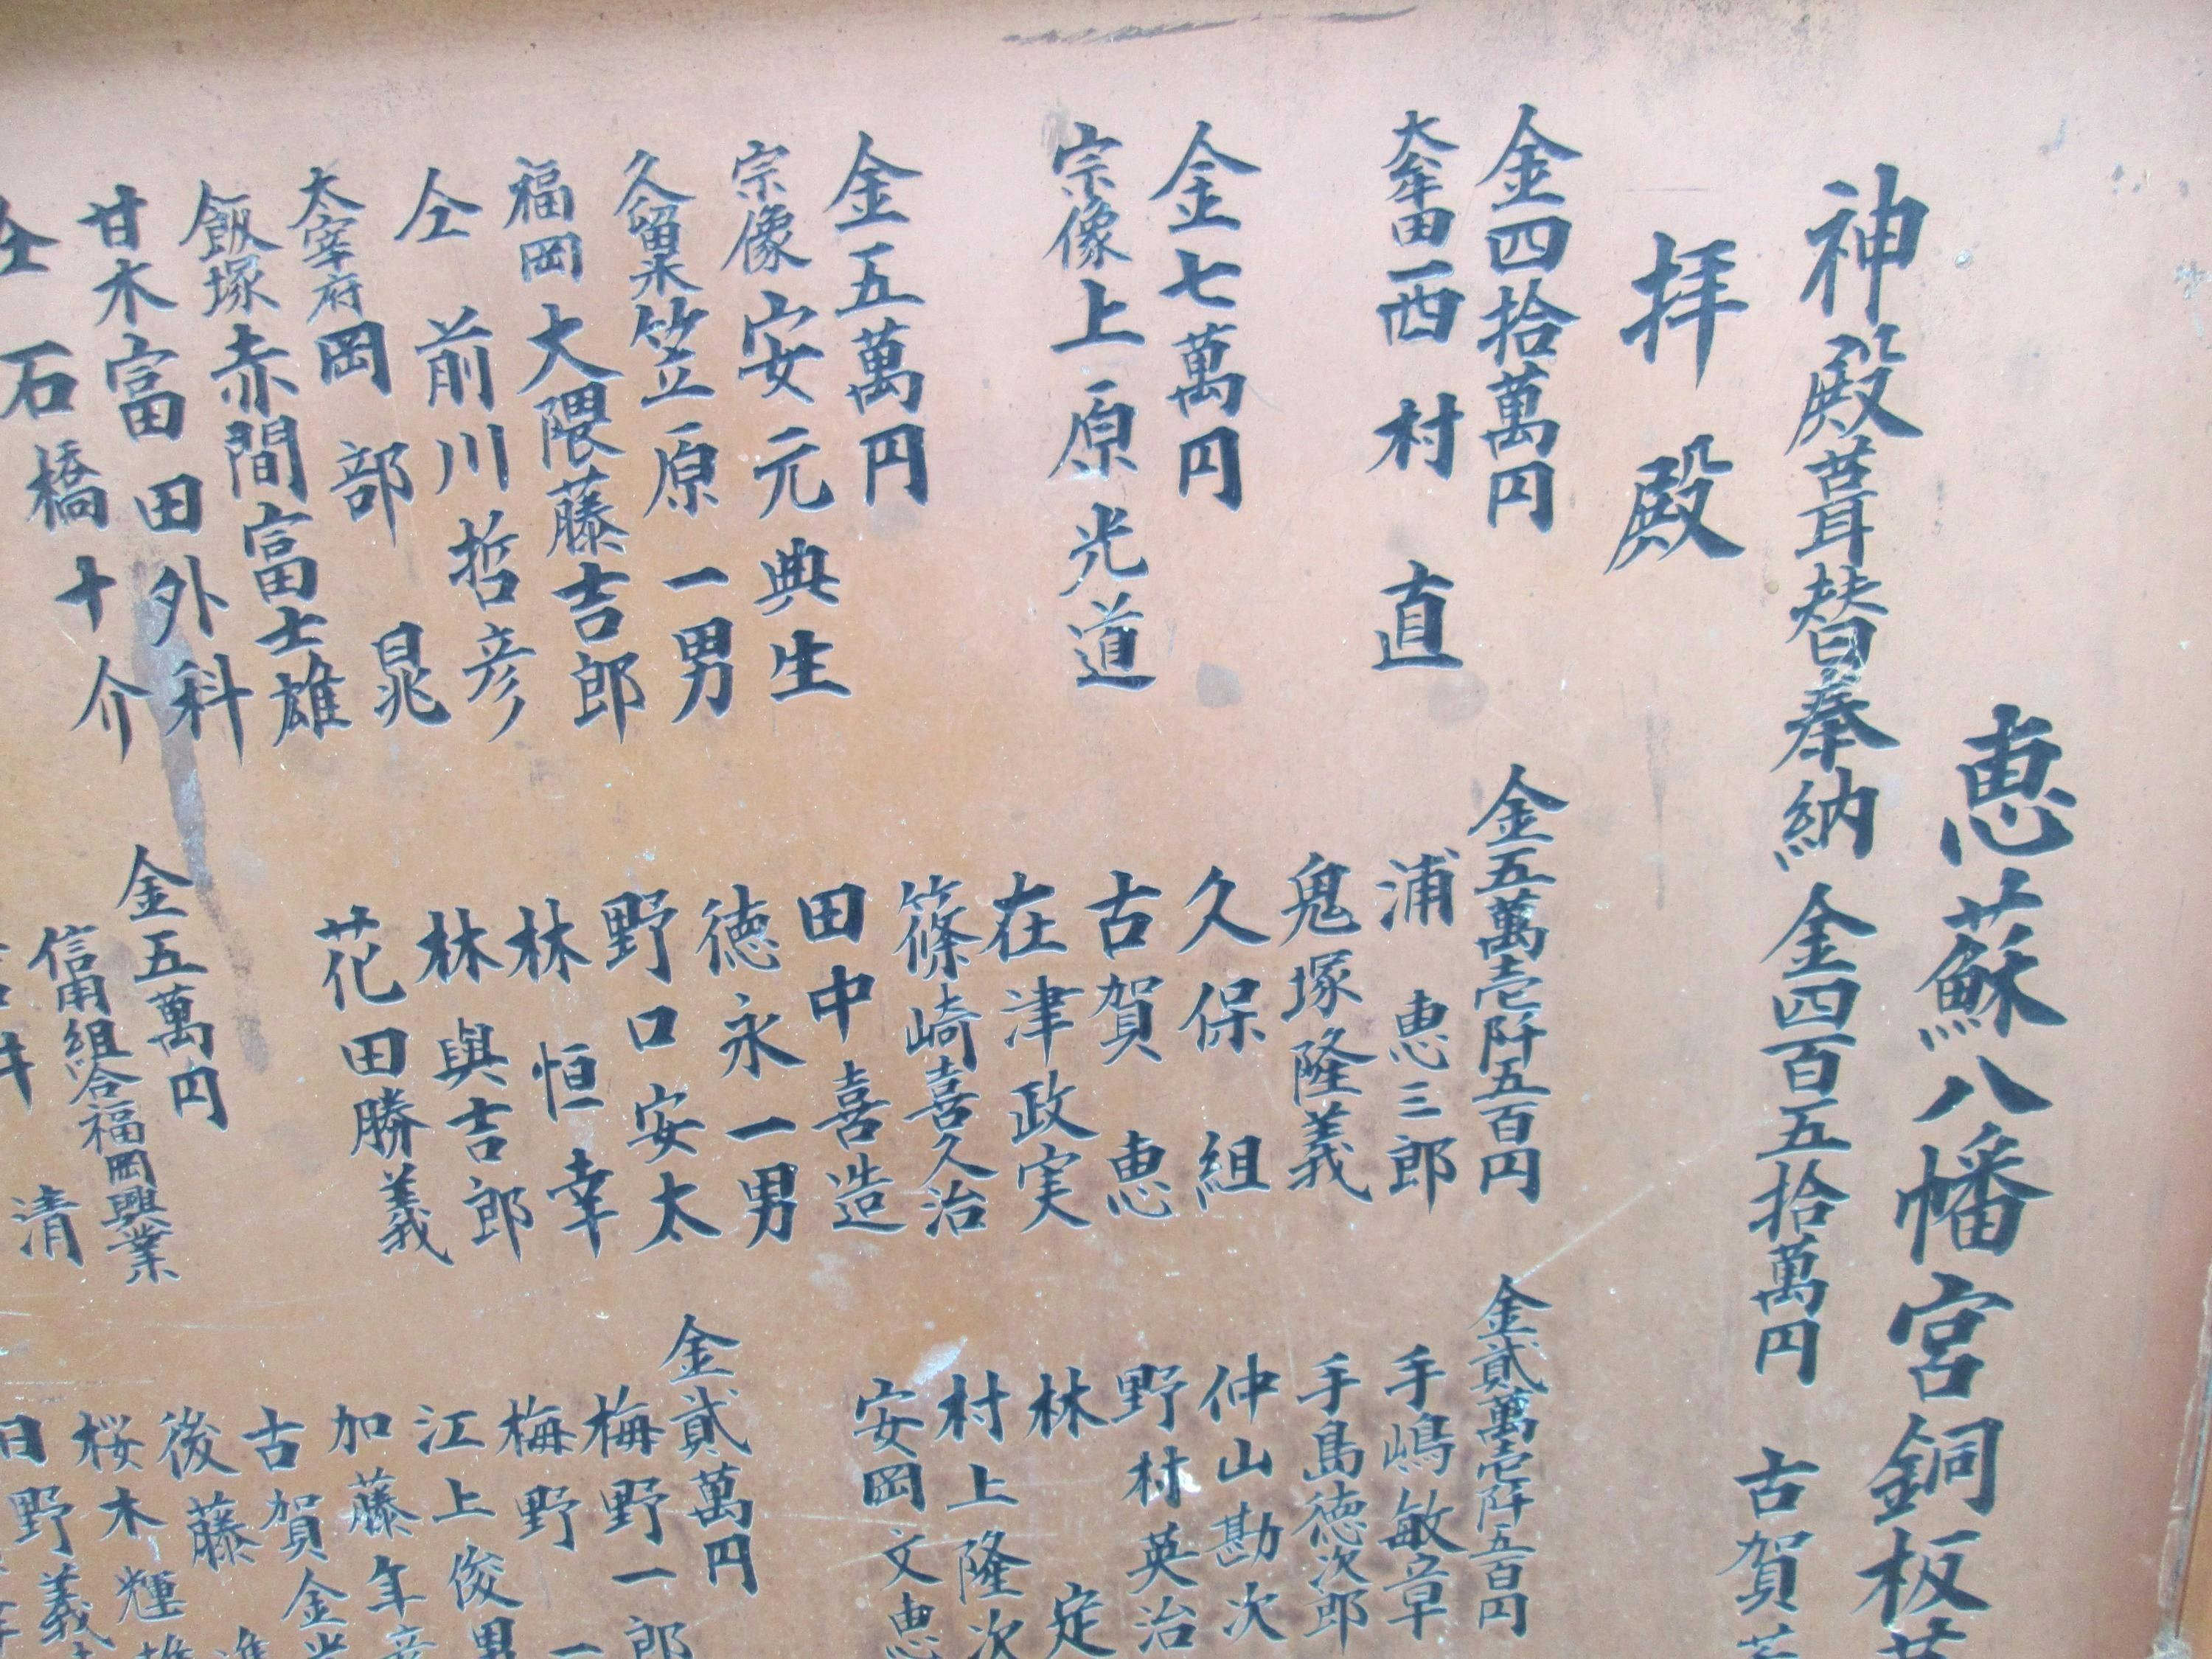 恵蘇八幡宮銅板
神殿葺替奉納 金四百五拾萬円 古賀
拝殿
金四拾萬円
大牟田 西村 直
金七萬円
宗像 上原光道
金五萬円
宗像 安元典生
久留米 笠原一男
福岡 大隈藤吉郎
仝 前川哲彦
太宰府 岡部 晁
飯塚 赤間富士雄
甘木 富田外科
仝 石橋十介
金五萬壱阡五百円
浦 恵三郎
鬼塚隆義
久保組
古賀 恵
在津政実
篠崎喜久治
田中喜造
徳永一男
野口安太
林 恒幸
林 與吉郎
花田勝義
金五萬円
信用組合福岡興業
清
金貳萬壱阡五百円
手嶋敏章
手島徳次郎
仲山勘次
野村英治
林 定
村上隆次
安岡文恵
金貳萬円
梅野一郎
梅野 一
江上俊男
加藤年
古賀金
後藤
桜木輝雄
日野義